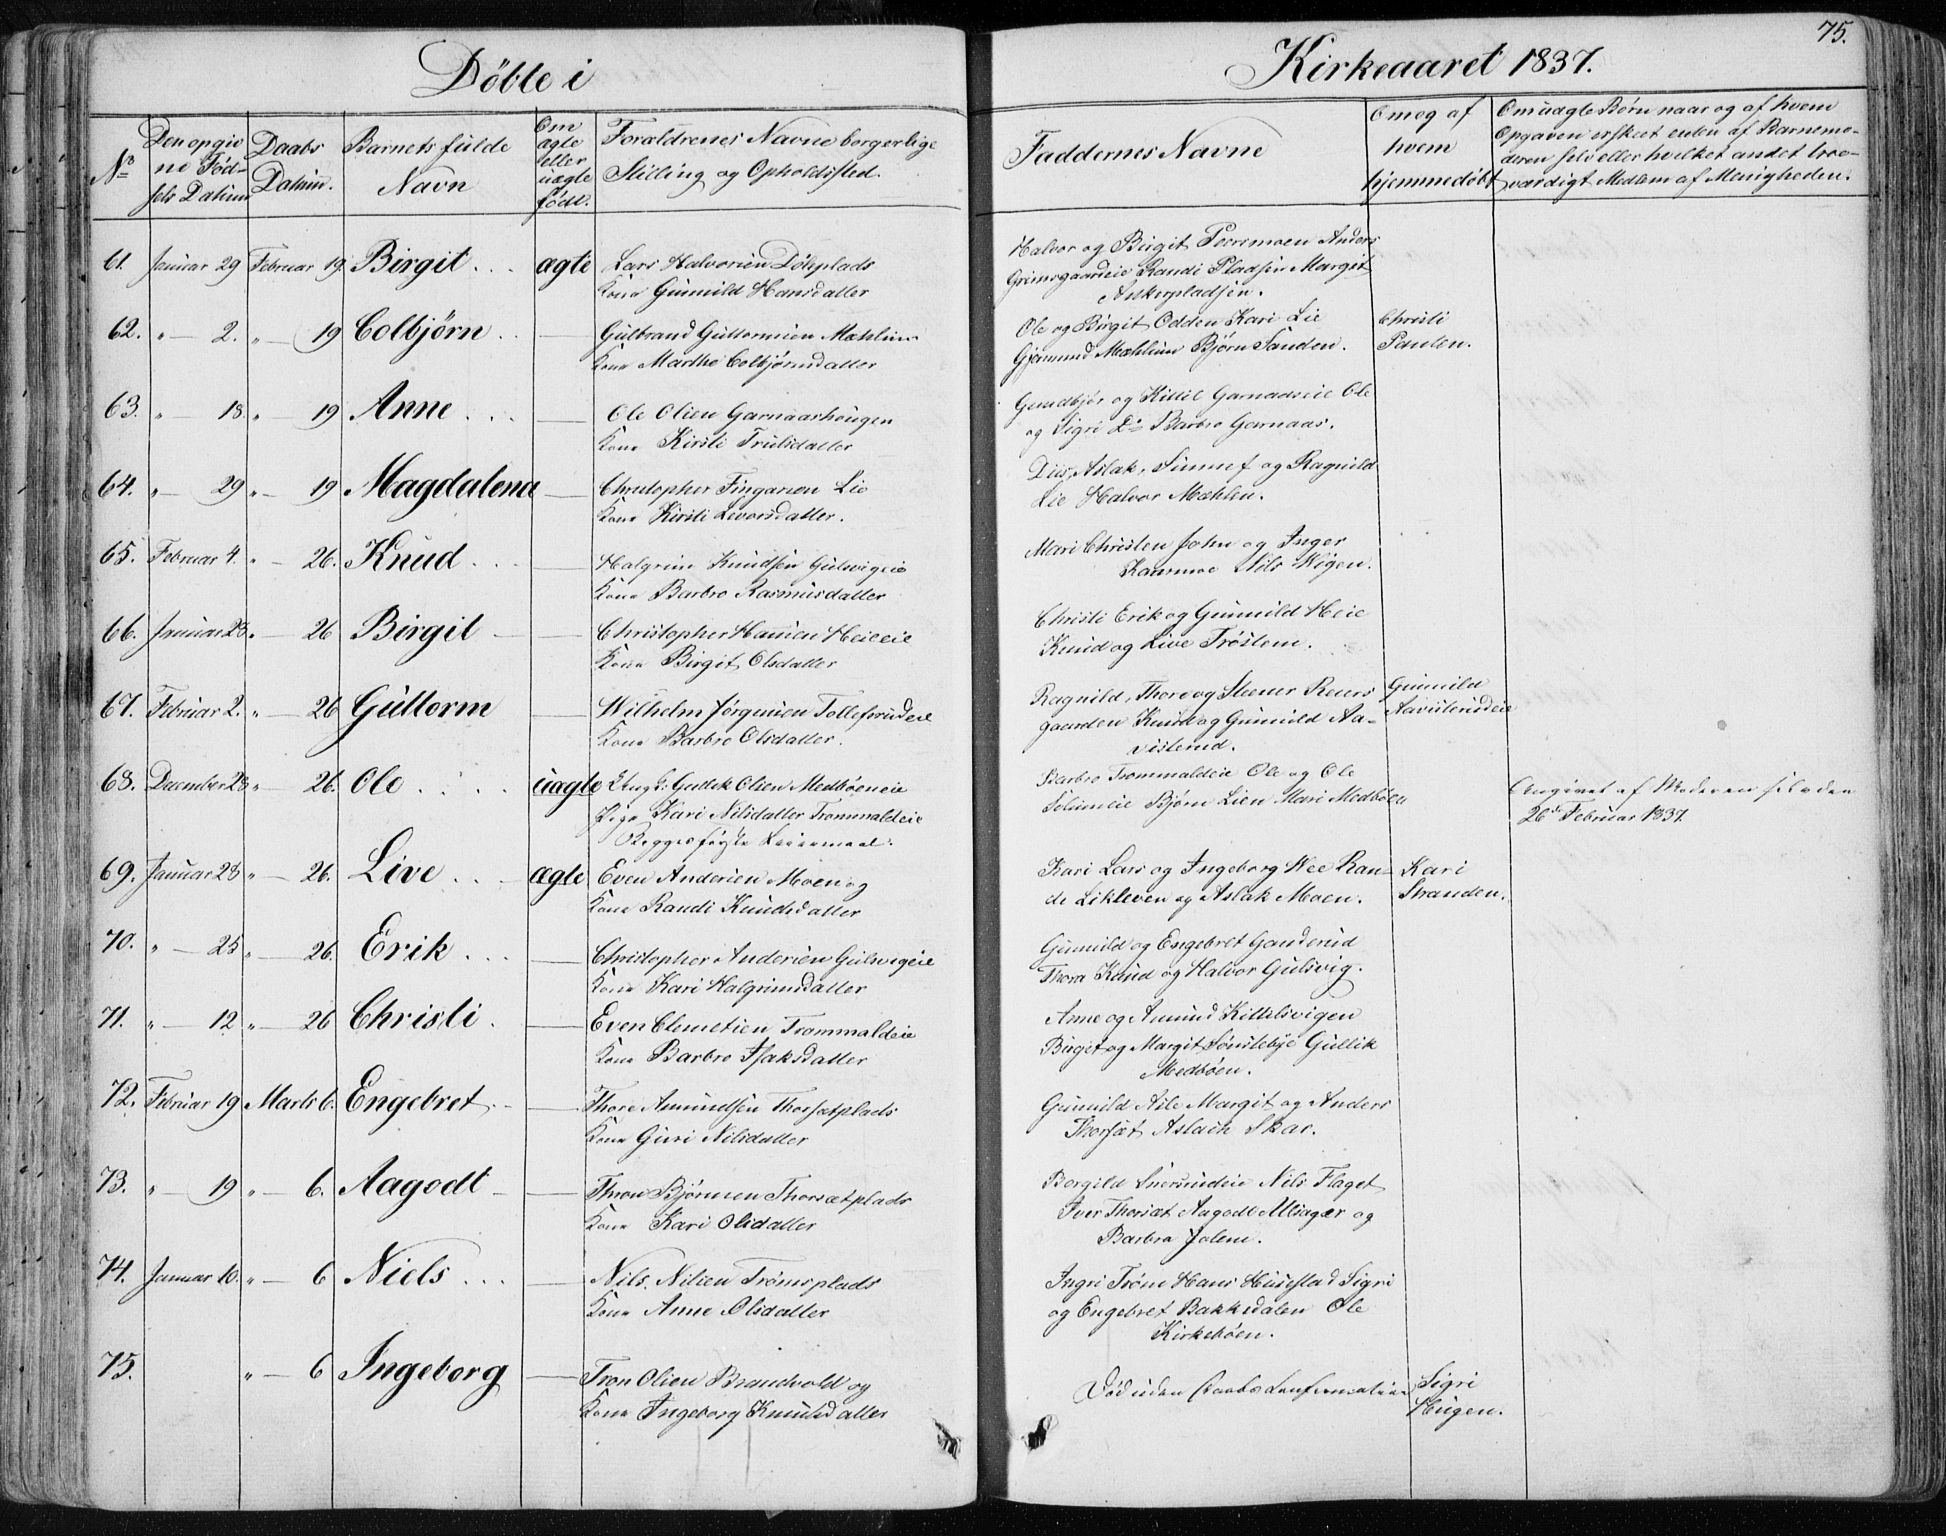 75.
Döbte i Kirkeaaret 1837.
No Den opgivne Födsels Datum Daabs Datum. Barnets fulde Navn Om ægte eller uægte födt. Forældrenes Navne borgerlige Stilling og Opholdssted. Faddernes Navne Om og af hvem hjemmedöbt Om uægte Børn naar og af hvem Opgaven er skeet enten af Barnemoderen selv eller hvilket andet troværdigt Medlem af Menigheden.
61. Januar 29 Februar 19. Birgit ægte Lars Halvorsen Dökplads
Kone Gunnild Hansdatter
Halvor og Birgit Peersmoen Anders
Grimsgaardeie Randi Pladsen Margit
Askerpladsen.
62. " 2. " 19 Colbjørn Gulbrand Guttormsen Mæhlum
Kone Marthe Colbjørnsdatter
Ole og Birgit Odden Kari Lie
Gjermund Mæhlum Bjørn Sanden.
Christi
Paulen.
63. " 18. " 19 Anne Ole Olsen Garnaashougen
Kone Kirsti Trulsdatter
Gundbjør og Kittil Garnaaseie Ole
og Sigri Do Barbro Garnaas.
64. " 29 " 19 Magdalena Christopher Fingarsen Lie
Kone Kirsti Levorsdatter.
Aslak, Sünnef og Ragnild
Lie Halvor Mæhlen.
65. Februar 4. " 26. Knud Halgrim Knudsen Gulsvigeie
Kone Barbro Rasmusdatter
Mari Christen John og Inger
Kaarmoe Nils Wigen.
66. Januar 28. " 26 Birgit Christopher Hansen Heieeie
Kone Birgit Olsdatter
Christi Erik og Gunnild Heie
Knud og Live Trøstem.
67. Februar 2. " 26 Guttorm Wilhelm Jörgensen Tollefsrudeie
Kone Barbro Olsdatter.
Ragnild, Thore og Steener Reiersgaarden Knud og Gunnild Aavisterud.
Gunnild
Aavisterudeie
68. December 28 " 26. Ole uægte Ung K: Gullik Olsen Medböeneie
Pige Kari Nilsdatter Trommaldeie
Begges förste Leiermaal.
Barbro Trommaldeie Ole og Ole
Solumeie Bjørn Lien Mari Medbøen
Angivet af Moderen selv den
26de Februar 1837.
69. Januar 28 " 26. Live ægte Even Andersen Moen og
Kone Randi Knudsdatter
Kari Lars og Ingeborg Wee Rande Likleven og Aslak Moen.
Kari
Stranden.
70. " 25 " 26. Erik Christopher Andersen Gulsvigeie
Kone Kari Halgrimsdatter
Gunnild og Engebret Ganderud
Thora Knud og Halvor Gulsvig.
71. " 12 " 26 Christi Even Clemetsen Trommaldeie
Kone Barbro Isaksdatter
Anne og Amund Kittilsvigen
Birget og Margit Sönstebye Gullik
Medbøen.
72. Februar 19 Marts 6. Engebret Thore Amundsen Thorsætplads
Kone Guri Nilsdatter
Gunnild Aile Margit og Anders
Thorsæt Aslach Skar.
73. " 19 " 6. Aagodt Thron Bjørnsen Thorsætplads
Kone Kari Olsdatter
Borgild Snersrudeie Nils Flaget
Iver Thorsæt Aagodt Alsager og
Barbro Jolem.
74. Januar 10. " 6 Niels Nils. Nilsen Trömsplads
Kone Anne Olsdatter
Ingri Tröm Hans Husestad Sigri
og Engebret Bakkedalen Ole
Kirkebøen.
75. " 6 Ingeborg Tron Olsen Brandvold og
Kone Ingeborg Knudsdatter
Död uden Daabs Confirmation
Sigri
Haugen.